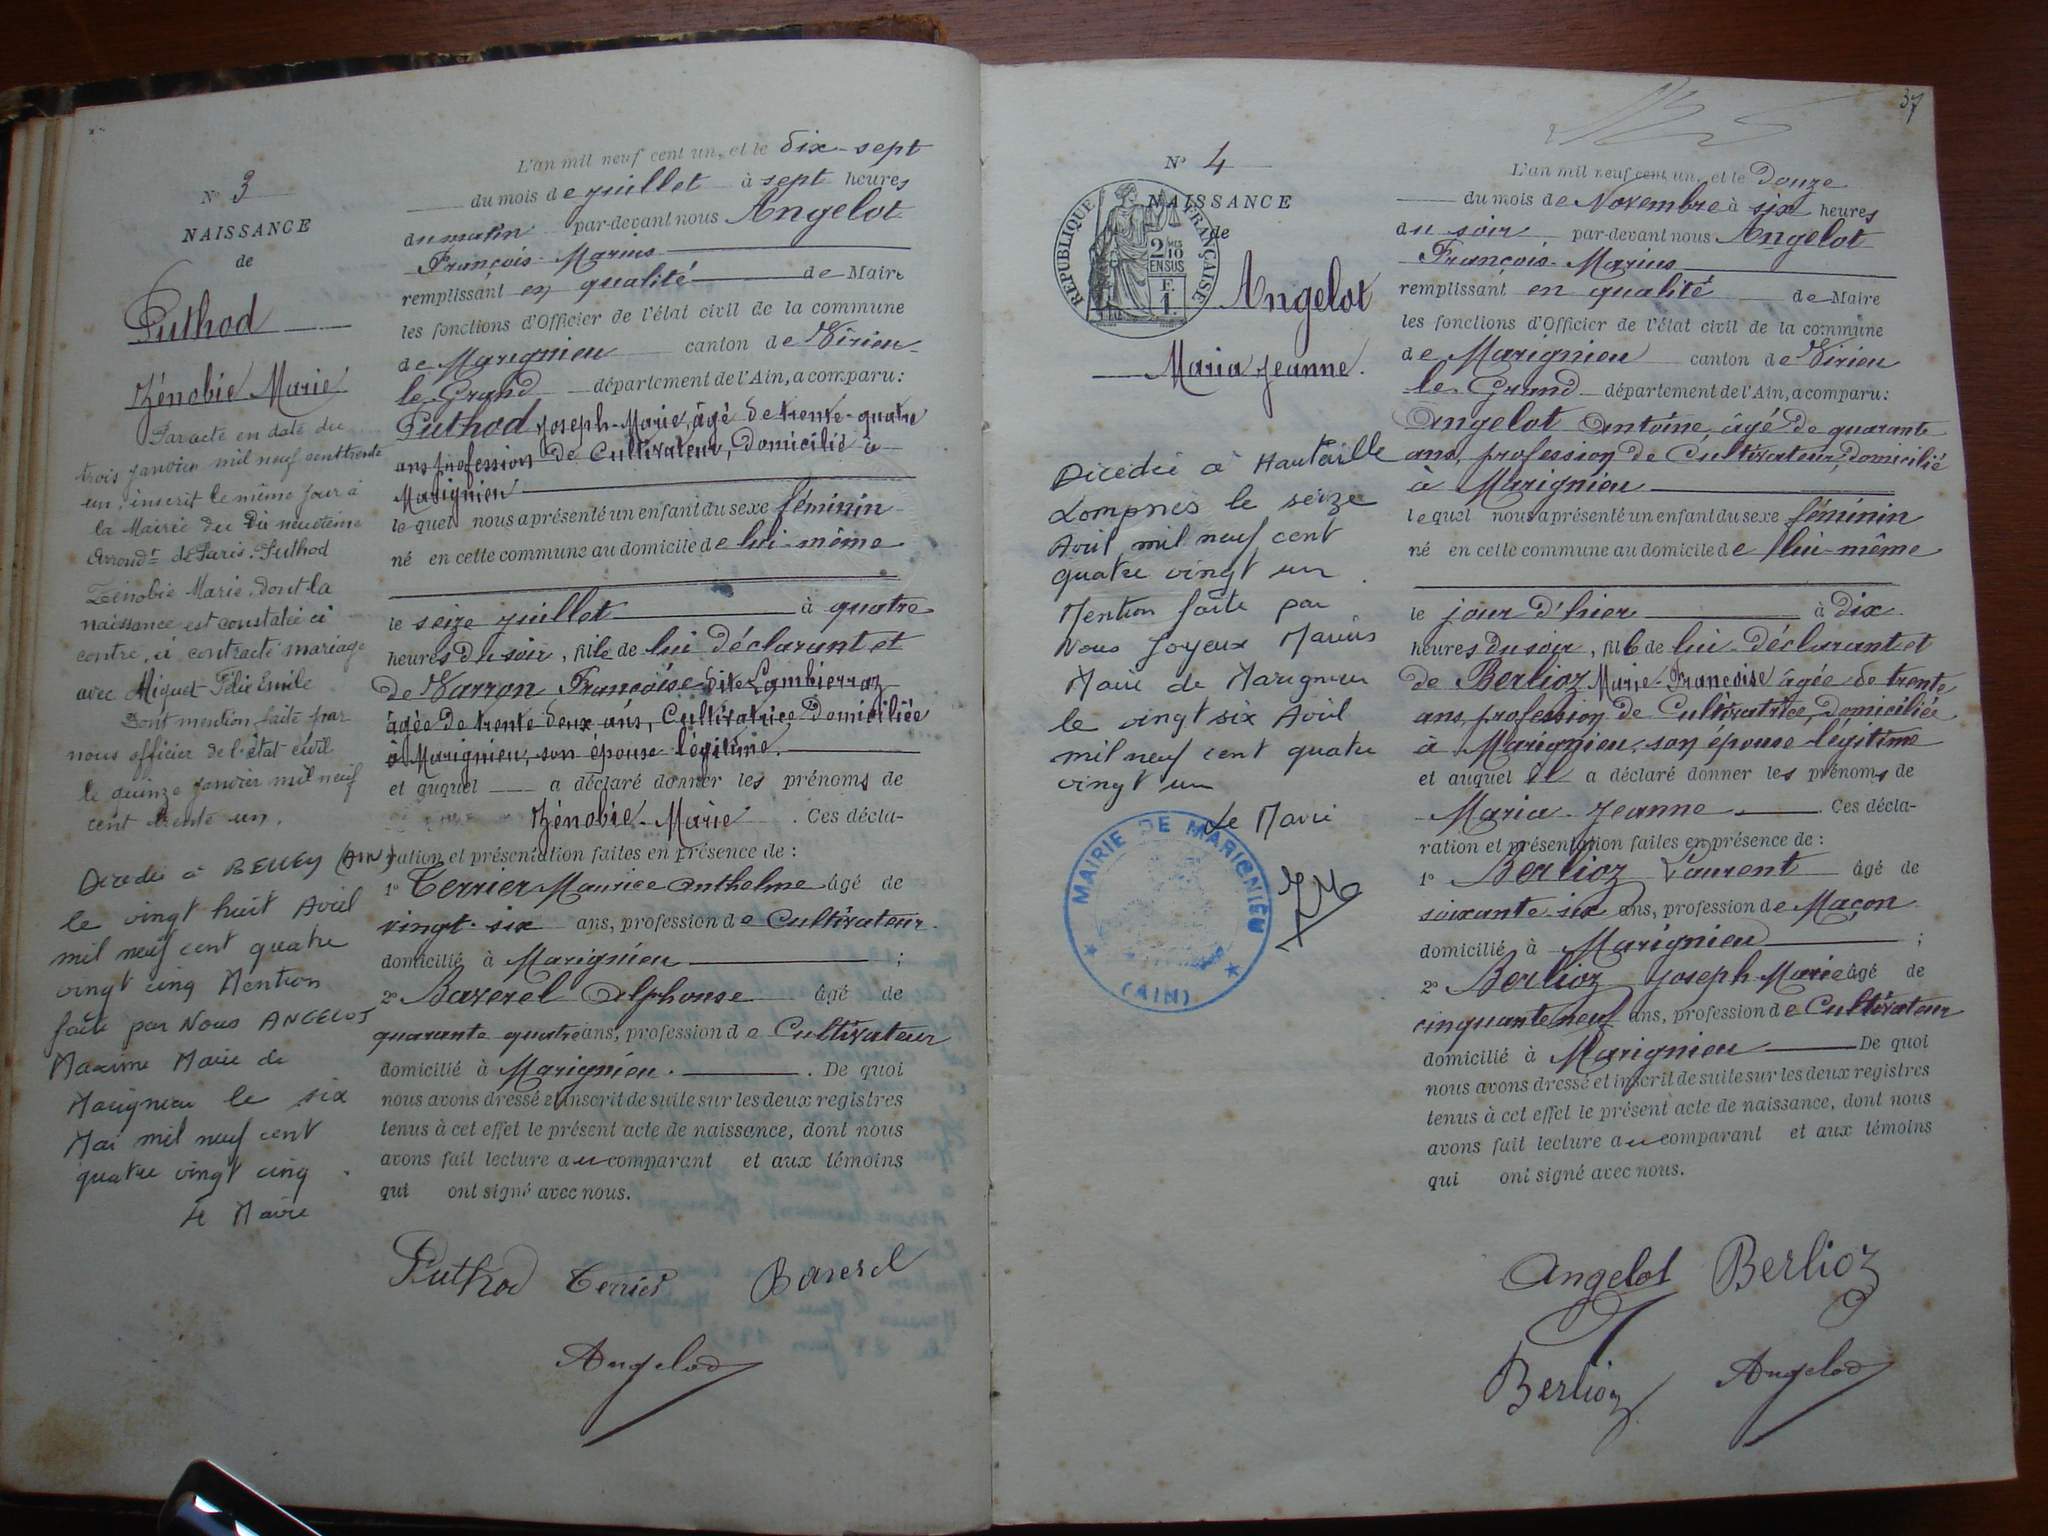 N° 3
NAISSANCE
de
Puthod
Zénobie Marie
Par acte en date du
trois janvier mil neuf cent trente
un, inscrit le même jour à
la Mairie du Dix neuvième
Arrondt de Paris. Puthod
Zénobie Marie, dont la
naissance est constatée ci
contre, a contracté mariage
avec Miguet Félix Emile
Dont mention faite par
nous officier de l'état civil
le quinze janvier mil neuf
cent trente un.
Décédée à BELLEY (AIN)
le vingt huit Avril
mil neuf cent quatre
vingt cinq Mention
faite par Nous ANGELOT
Maxime Maire de
Marignieu le six
Mai mil neuf cent
quatre vingt cinq.
Le Maire
L'an mil neuf cent un, et le dix-sept
du mois de juillet à sept heures
du matin par-devant nous Angelot
François-Marius
remplissant en qualité de Maire
les fonctions d'Officier de l'état civil de la commune
de Marignieu canton de Virieu-
le-Grand département de l'Ain, a comparu :
Puthod Joseph-Marie, âgé de trente-quatre
ans, profession de Cultivateur, domicilié à
Marignieu
lequel nous a présenté un enfant du sexe féminin
né en cette commune au domicile de lui-même
le seize juillet à quatre
heures du soir, fille de lui déclarant et
de Varron Françoise dite Lambierraz
âgée de trente deux ans, Cultivatrice, domiciliée
à Marignieu, son épouse légitime.
et auquel a déclaré donner les prénoms de
Zénobie-Marie. Ces décla-
ration et présentation faites en présence de :
1° Terrier Maurice Anthelme âgé de
vingt-six ans, profession de Cultivateur
domicilié à Marignieu ;
2° Baverel Alphonse âgé de
quarante quatre ans, profession de Cultivateur
domicilié à Marignieu. De quoi
nous avons dressé et inscrit de suite sur les deux registres
tenus à cet effet le présent acte de naissance, dont nous
avons fait lecture au comparant et aux témoins
qui ont signé avec nous.
Puthod Terrier Baverel
Angelot
37
N° 4
NAISSANCE
de
RÉPUBLIQUE FRANÇAISE
2 MES 10
EN SUS
F.
1.
Angelot
Maria Jeanne.
Décédée à Hauteville
Lompnès le seize
Avril mil neuf cent
quatre vingt un.
Mention faite par
Nous Joyeux Marius
Maire de Marignieu
le vingt six Avril
mil neuf cent quatre
vingt un
Le Maire
MAIRIE DE MARIGNIEU
(AIN)
L'an mil neuf cent un, et le douze
du mois de Novembre à six heures
du soir par-devant nous Angelot
François-Marius
remplissant en qualité de Maire
les fonctions d'Officier de l'état civil de la commune
de Marignieu canton de Virieu
le-Grand département de l'Ain, a comparu :
Angelot Antoine, âgé de quarante
ans, profession de Cultivateur, domicilié
à Marignieu
lequel nous a présenté un enfant du sexe féminin
né en cette commune au domicile de lui-même
le jour d'hier à dix
heures du soir, fille de lui déclarant et
de Berlioz Marie-Françoise âgée de trente
ans, profession de Cultivatrice, domiciliée
à Marignieu, son épouse légitime
et auquel il a déclaré donner les prénoms de
Maria-Jeanne. Ces décla-
ration et présentation faites en présence de :
1° Berlioz Laurent âgé de
soixante-six ans, profession de Maçon
domicilié à Marignieu ;
2° Berlioz Joseph-Marie âgé de
cinquante neuf ans, profession de Cultivateur
domicilié à Marignieu De quoi
nous avons dressé et inscrit de suite sur les deux registres
tenus à cet effet le présent acte de naissance, dont nous
avons fait lecture au comparant et aux témoins
qui ont signé avec nous.
Angelot Berlioz
Berlioz Angelot